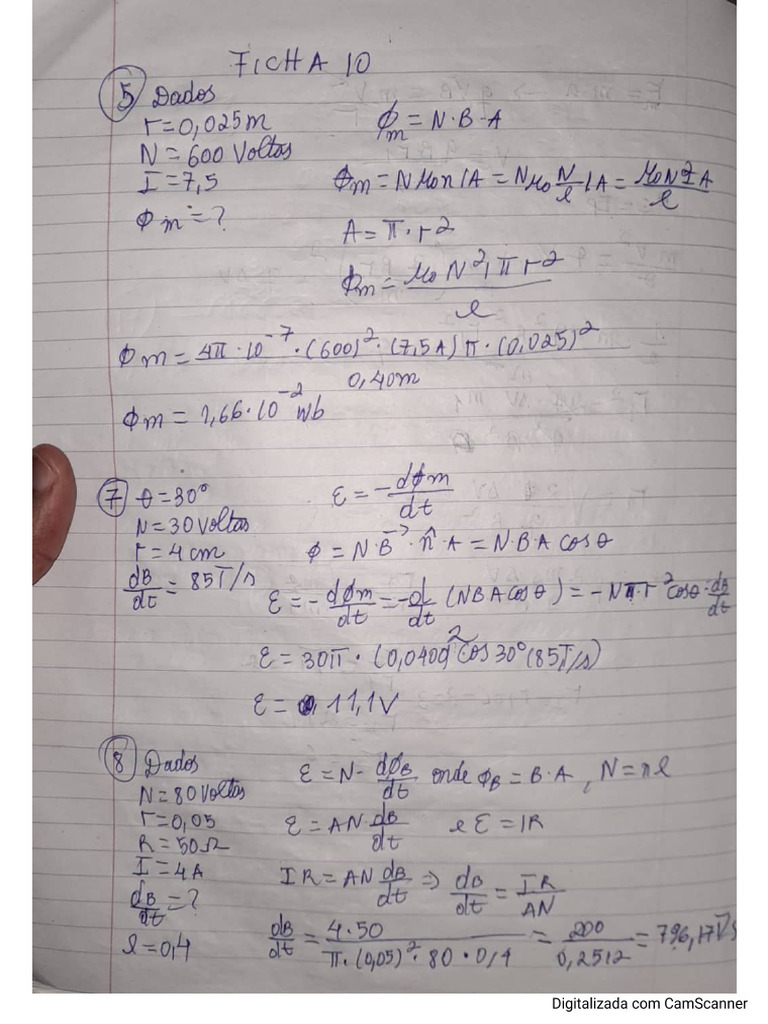 FICHA 10
5 Dados
r=0,025m
N=600 Voltas
I=7,5
ϕm=?
ϕm=N·B·A
ϕm=Nμ0nIA=Nμ0 N/l IA=μ0N²IA/l
A=π·r²
ϕm=μ0N²Iπr²/l
ϕm=4π·10⁻⁷·(600)²·(7,5A)π·(0,025)²/0,40m
ϕm=1,66·10⁻² wb
7 θ=30°
N=30 Voltas
r=4cm
dB/dt=85T/s
ε=-dϕm/dt
ϕ=N·B⃗·n̂·A=N·B·A cosθ
ε=-dϕm/dt=-d/dt(NBAcosθ)=-Nπ·r²cosθ·dB/dt
ε=30π·(0,0400)²cos30°(85T/s)
ε=11,1V
8 Dados
N=80 Voltas
r=0,05
R=50Ω
I=4A
dB/dt=?
l=0,4
ε=N·dϕB/dt onde ϕB=B·A, N=nl
ε=AN·dB/dt e ε=IR
IR=AN dB/dt ⇒ dB/dt=IR/AN
dB/dt=4·50/π·(0,05)²·80·0,4=200/0,2512=796,17T/s
Digitalizada com CamScanner